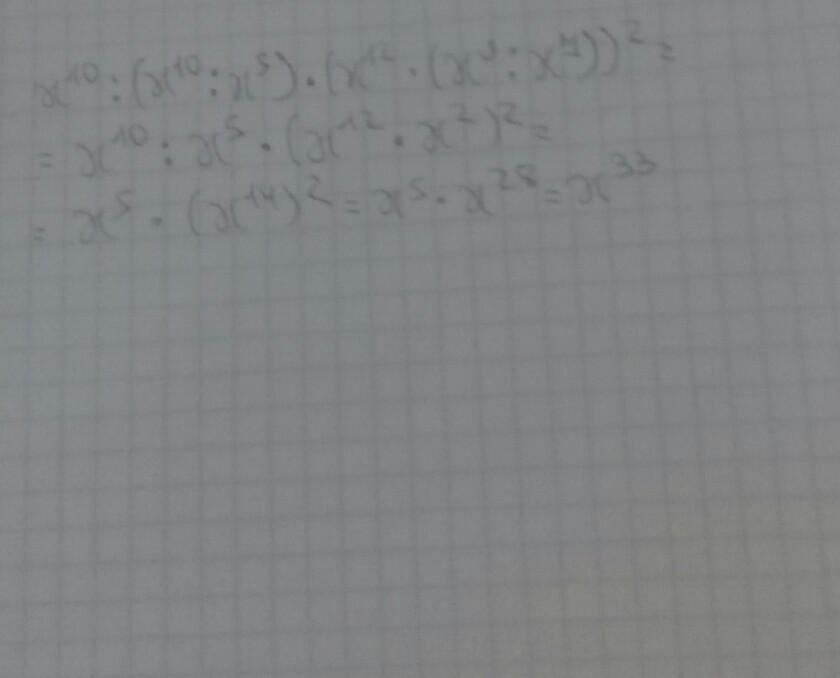 x¹⁰ : (x¹⁰ : x⁵) · (x¹² · (x⁹ : x⁷))² =
= x¹⁰ : x⁵ · (x¹² · x²)² =
= x⁵ · (x¹⁴)² = x⁵ · x²⁸ = x³³